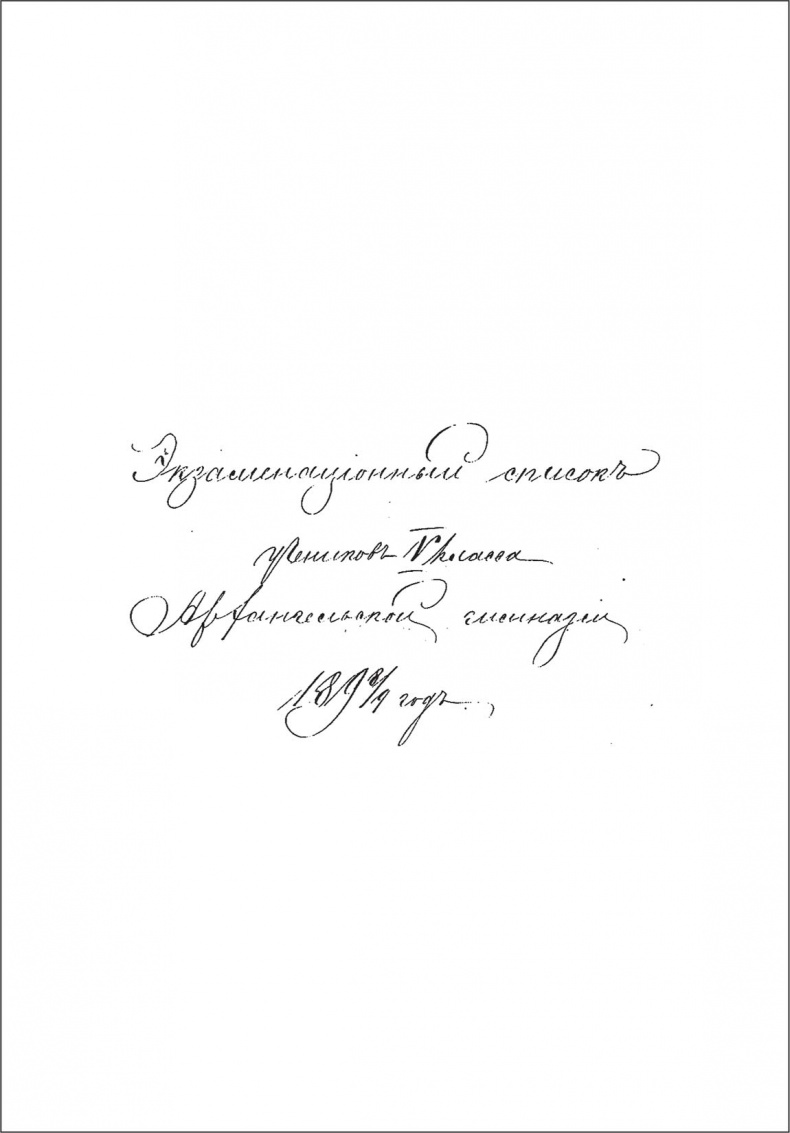 Экзаменаціонный списокъ
учениковъ V класса
Архангельской гимназіи
189 8/9 годъ.